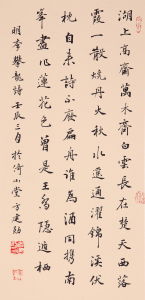 湖上高齋萬木齊白雲長在楚天西落
霞一散燒丹火秋水遙通濯錦溪伏
枕自春詩亦廢扁舟誰為酒同攜南
峯盡化蓮花色曾是王喬隱遁栖
明李攀龍詩壬辰三月於倚山堂方建勛